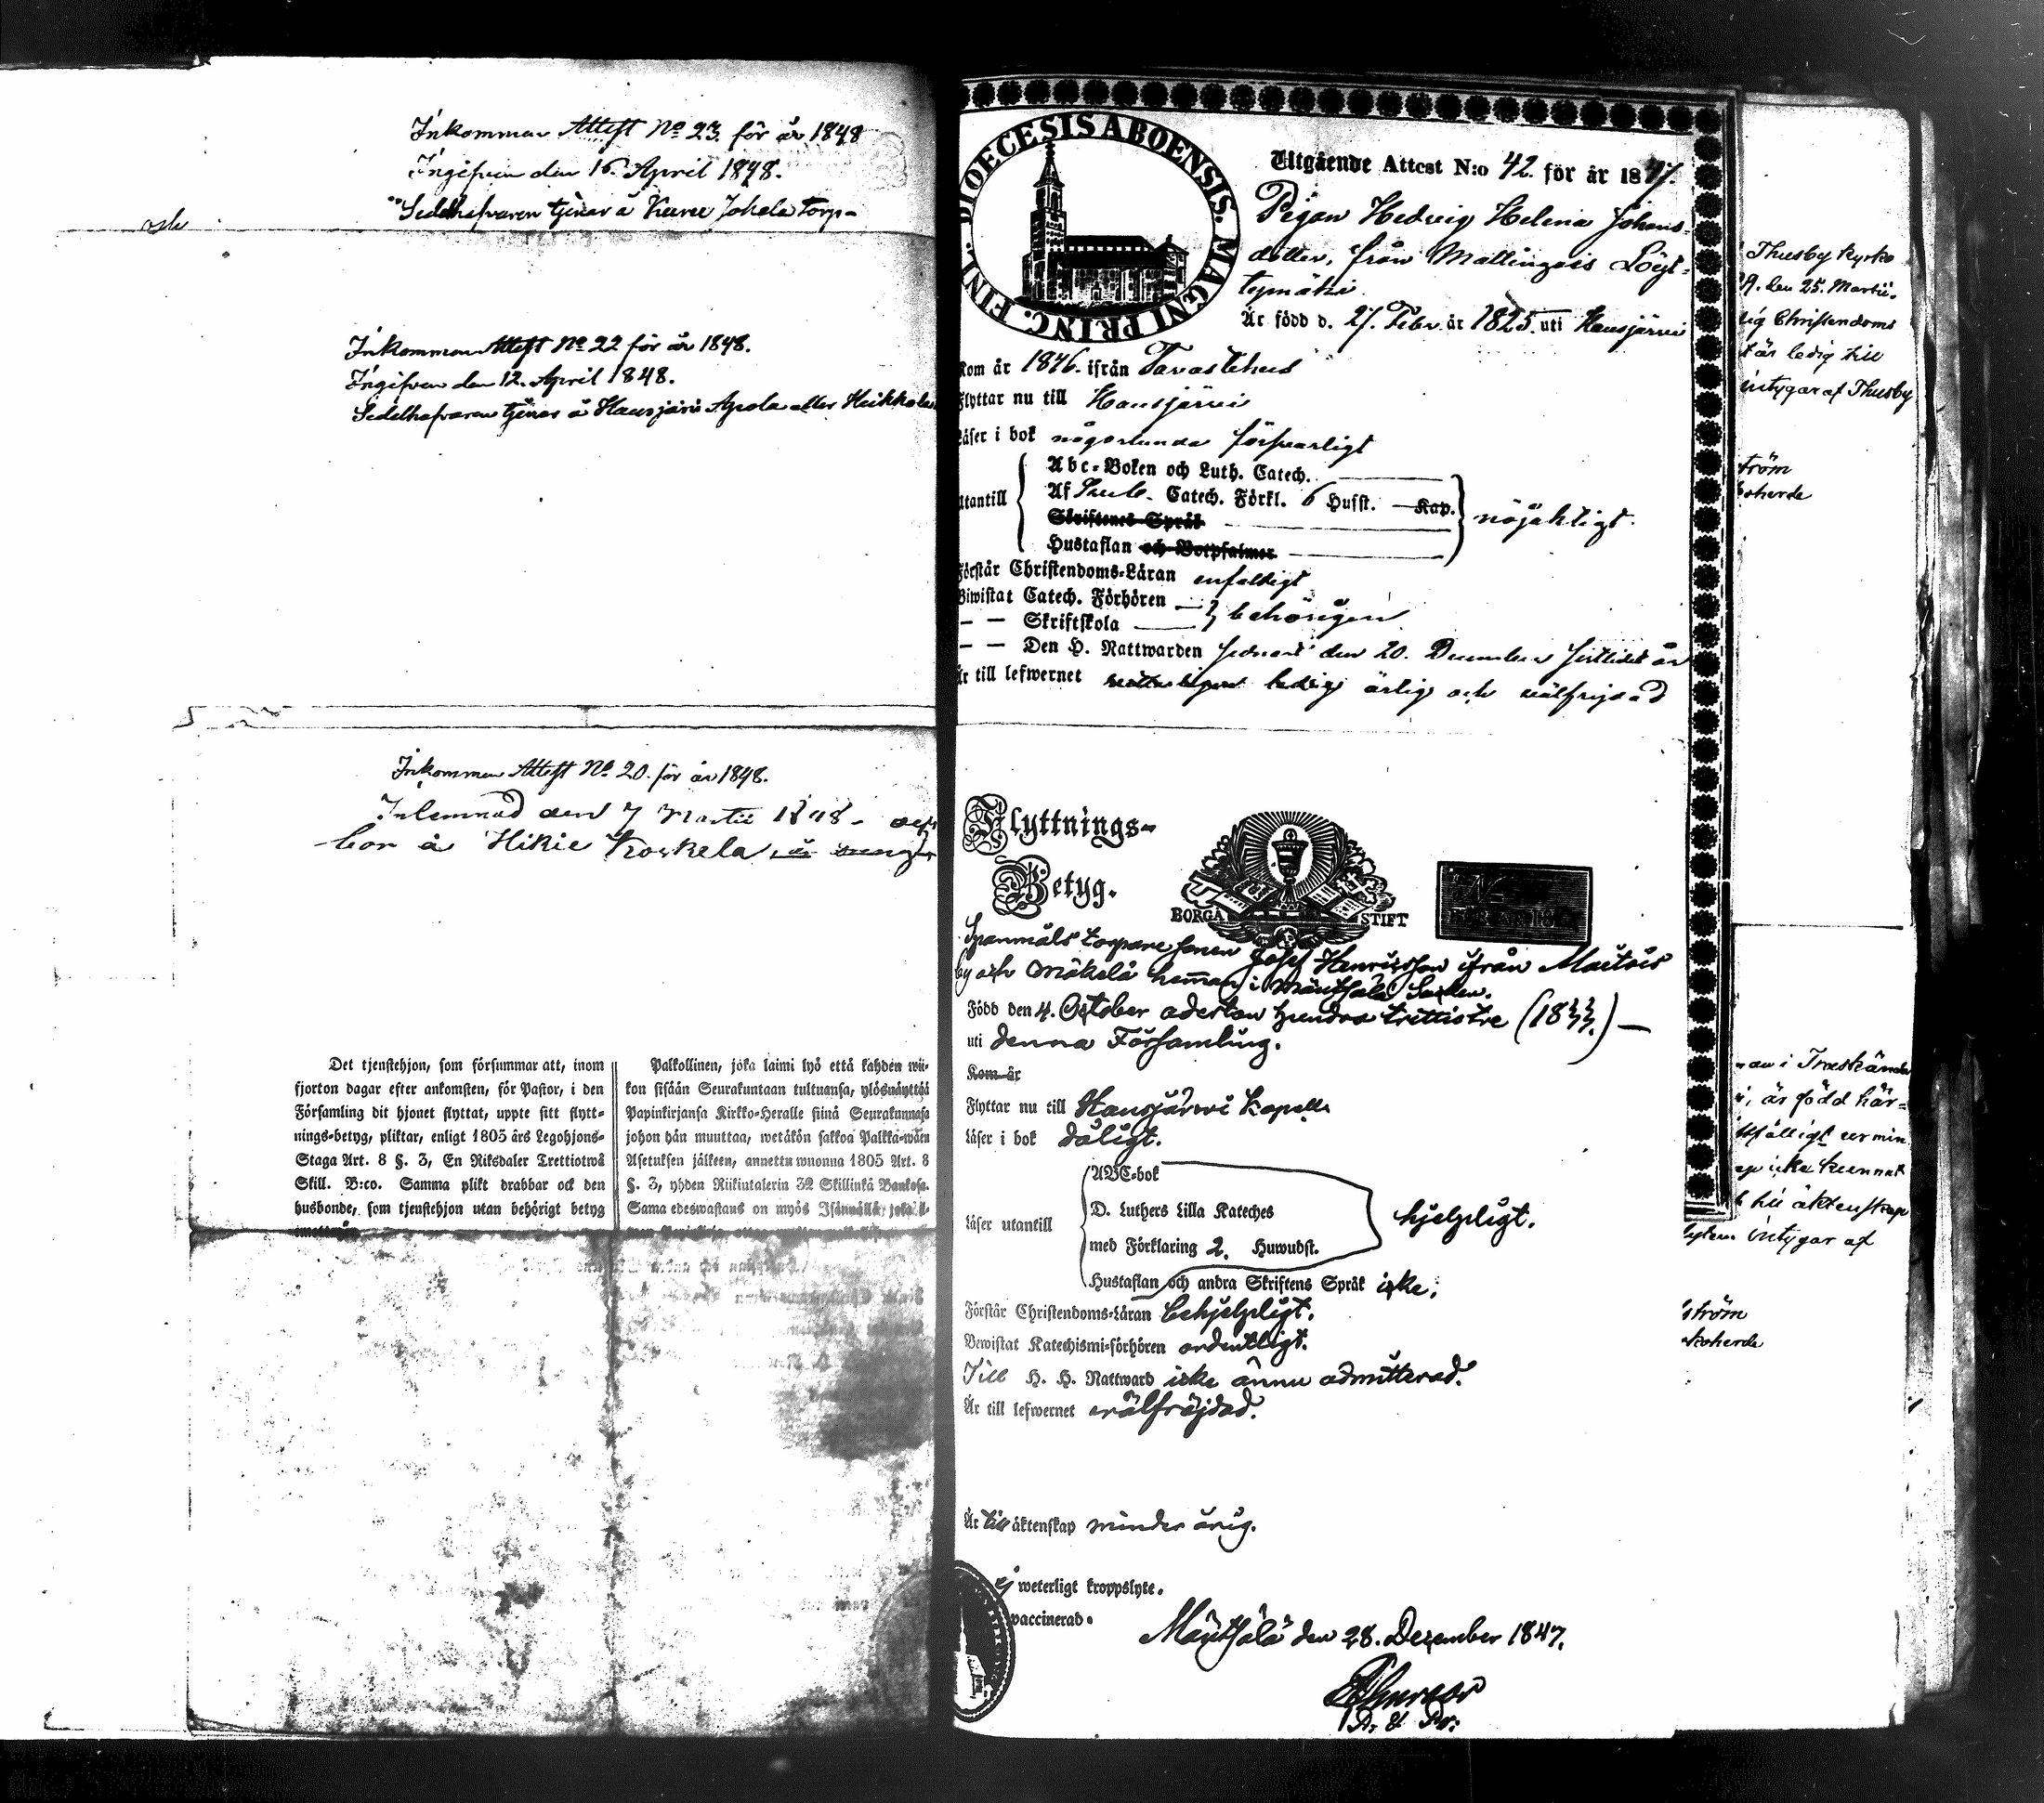 Inkommen Attest No 23. för år 1848
Ingifven den 16. April 1848.
Sedelhafvaren tjenar å Karee Jokela torp-
och
Inkommen Attest No 22 för år 1848.
Ingifven den 12. April 1848.
Sedelhafvaren tjenar å Hausjärvi Apola eller Heikkola
Inkommen Attest No 20. för år 1848.
Inlemnad den 7 Martii 1848 -
bor å Hikie Koskela
Det tjenstehjon, som försummar att, inom
fjorton dagar efter ankomsten, för Pastor, i den
Församling dit hjonet flyttat, uppte sitt flytt-
nings-betyg, pliktar, enligt 1805 års Legohjons-
Staga Art. 8 §. 3, En Riksdaler Trettiotwå
Skill. B:co. Samma plikt drabbar ock den
husbonde, som tjenstehjon utan behörigt betyg
Palkollinen, joka laimi lyö että kahden wii-
kon sisään Seurakuntaan tultuansa, ylösnäyttää
Papinkirjansa Kirkko-Heralle siinä Seurakunnasa
johon hän muuttaa, wetäkön sakkoa Palkka-wäen
Asetuksen jälkeen, annettu wuonna 1805 Art. 8
§. 3, yhden Riikintalerin 32 Skillinkä Bankosa.
Sama edeswastaus on myös Isännällä, joka il-
DIOECESIS ABOENSIS. MAGNI PRINC. FINL.
Utgående Attest N:o 42. för år 1847.
Pigan Hedvig Helena Johans-
dotter, från Mallinggis Löyt-
tymäki
Är född d. 27. Febr. år 1825. uti Hausjärvi
Kom år 1846. ifrån Tavastehus
Flyttar nu till Hausjärvi
Läser i bok någorlunda försvarligt
Utantill
Abc-Boken och Luth. Catech.
Af Catech. Förkl. 6 Hufst. Kap.
Skriftenes Språk
Hustaflan och Botpsalmer
nöjaktigt.
Förstår Christendoms-Läran enfaldigt
Biwistat Catech. Förhören
Skriftskola behörigen
Den H. Nattwarden senast den 20. December sistlidet år
Är till lefwernet ledig ärlig och välfrejdad
Flyttnings-
Betyg.
BORGÅ STIFT
Spanmåls torpare sonen Josef Henricsson ifrån Maitois
by och Mäkelä hemman i Mäntsälä Socken.
Född den 4. October aderton hundra trettiotre (1833.)
uti denna Församling.
Kom år
Flyttar nu till Hausjärwi Kapell.
Läser i bok dåligt.
Läser utantill
ABC-bok
D. Luthers Lilla Kateches
med Förklaring 2. Huwudst.
hjelpligt.
Hustaflan och andra Skriftens Språk icke.
Förstår Christendoms-Läran behjelpligt.
Bewistat Katechismi-förhören ordentligt.
Till H. H. Nattward icke ännu admitterad.
Är till lefwernet wälfrejdad.
Är till äktenskap minder årig.
ej weterligt kroppslyte.
vaccinerad.
Mäntsälä den 28. December 1847.
Thusby kyrko
den 25. Martii.
lig Christendoms
är ledig till
intygar af Thusby
ström
koherde
i Träskända
är född här-
icke kunnat
till äktenskap
intygar af
ström
koherde